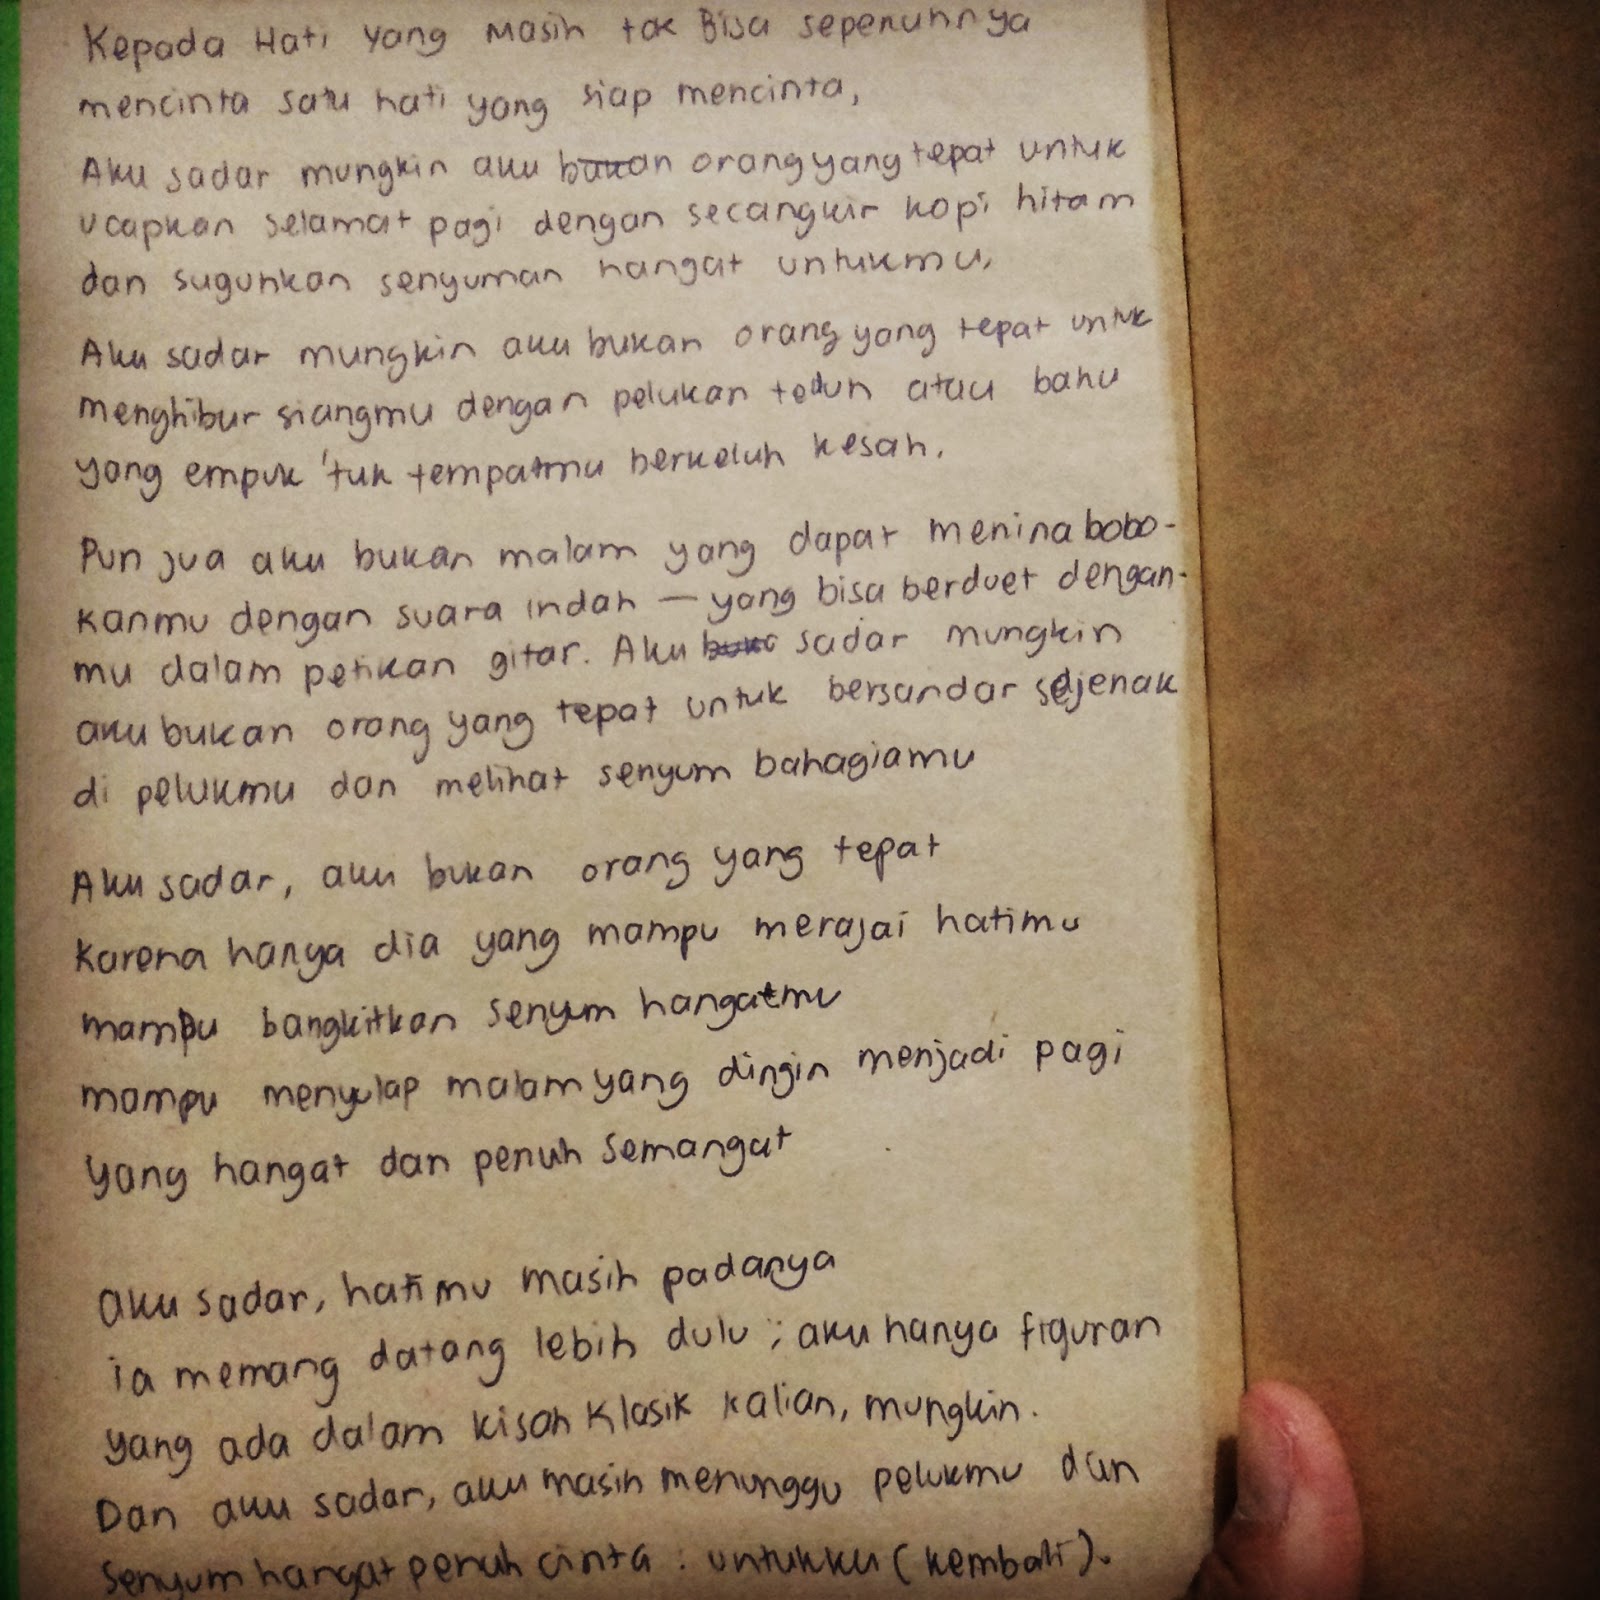 Kepada Hati yang Masih tak Bisa sepenuhnya
mencinta satu hati yang siap mencinta,
Aku sadar mungkin aku bukan orang yang tepat untuk
ucapkan selamat pagi dengan secangkir kopi hitam
dan suguhkan senyuman hangat untukmu,
Aku sadar mungkin aku bukan orang yang tepat untuk
menghibur siangmu dengan pelukan teduh atau bahu
yang empuk 'tuk tempatmu berkeluh kesah.
Pun jua aku bukan malam yang dapat meninabobo-
kanmu dengan suara indah — yang bisa berduet dengan-
mu dalam petikan gitar. Aku sadar mungkin
aku bukan orang yang tepat untuk bersandar sejenak
di pelukmu dan melihat senyum bahagiamu
Aku sadar, aku bukan orang yang tepat
karena hanya dia yang mampu merajai hatimu
mampu bangkitkan senyum hangatmu
mampu menyulap malam yang dingin menjadi pagi
yang hangat dan penuh semangat
Aku sadar, hatimu masih padanya
ia memang datang lebih dulu ; aku hanya figuran
yang ada dalam kisah klasik kalian, mungkin.
Dan aku sadar, aku masih menunggu pelukmu dan
senyum hangat penuh cinta : untukku (kembali).